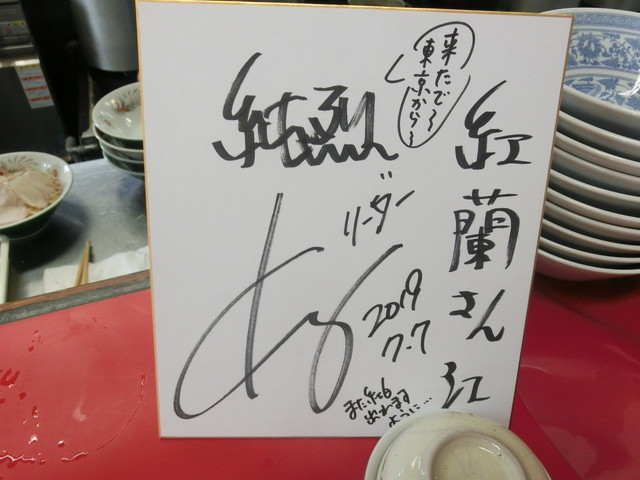 紅蘭さん江
来たで〜
東京から〜
純烈
リーダー
2019
7-7
また紅白
出れます
ように…